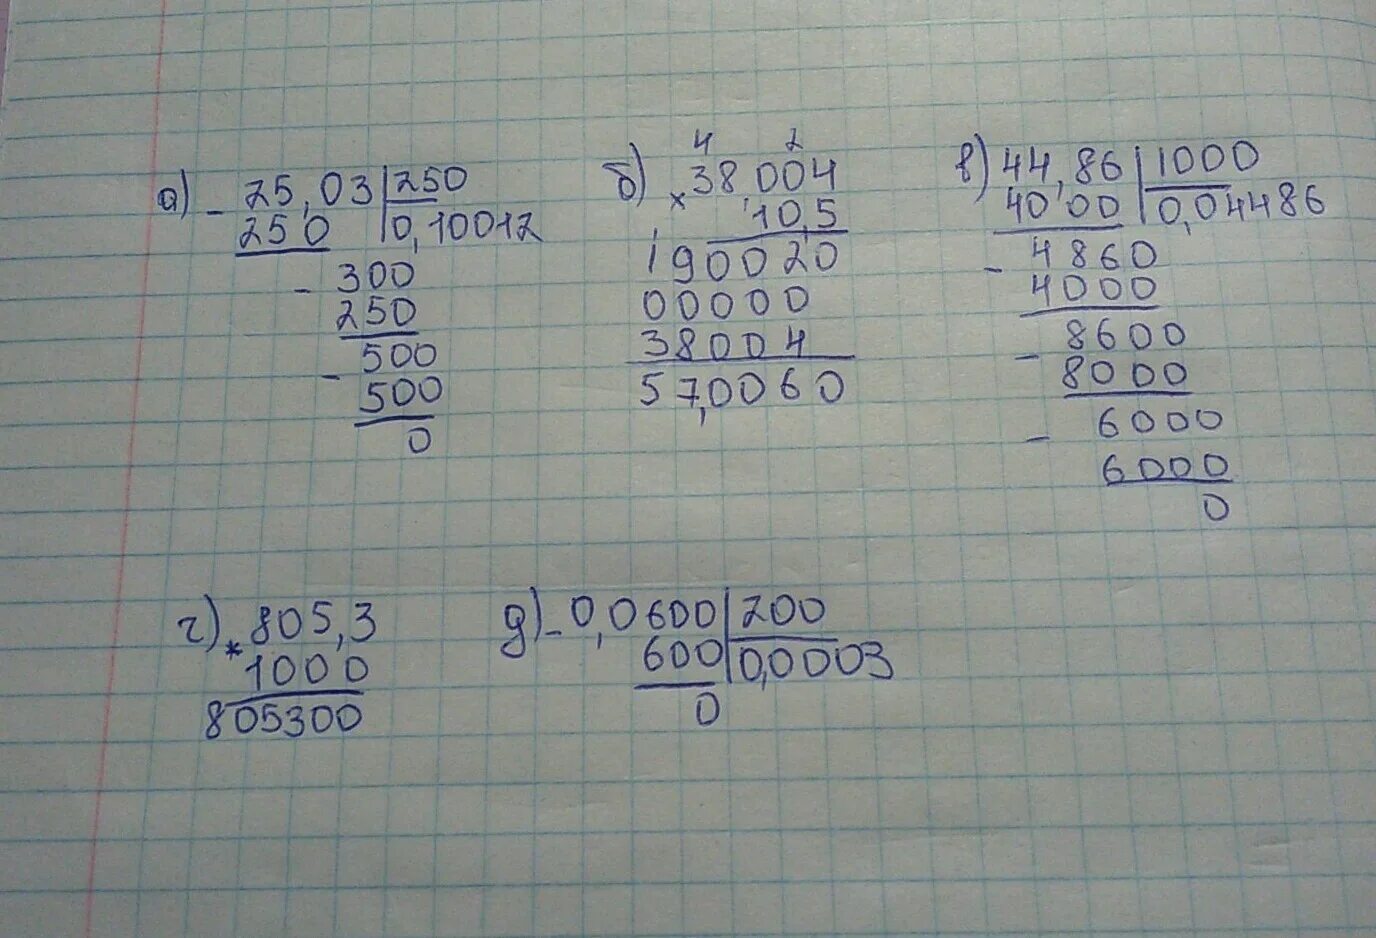 а) - 25,03 | 250
250 | 0,10012
- 300
250
- 500
500
0
4 2
б) × 38004
10,5
190020
00000
38004
57,0060
в) 44,86 | 1000
4000 | 0,04486
- 4860
4000
- 8600
8000
- 6000
6000
0
г) * 805,3
1000
805300
д) - 0,0600 | 200
600 | 0,0003
0